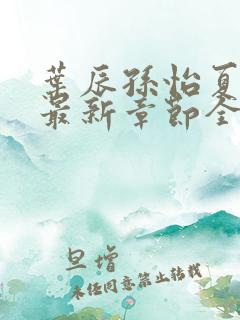 葉辰孫怡夏
最新章節全
旦增
未经同意禁止转载